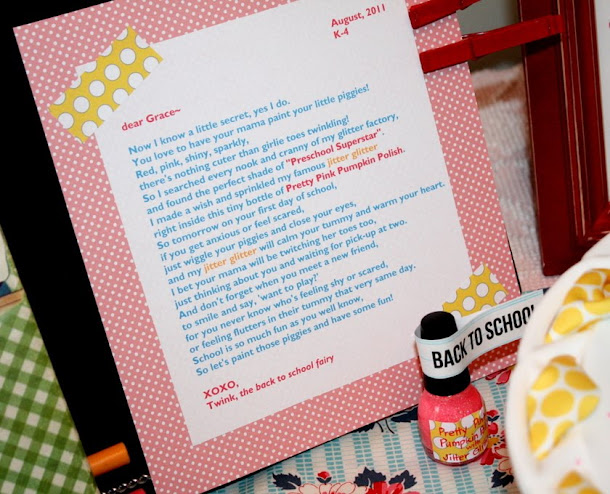 August, 2011
K-4
dear Grace~
Now I know a little secret, yes I do.
You love to have your mama paint your little piggies!
Red, pink, shiny, sparkly,
there's nothing cuter than girlie toes twinkling!
So I searched every nook and cranny of my glitter factory,
and found the perfect shade of "Preschool Superstar".
I made a wish and sprinkled my famous jitter glitter
right inside this tiny bottle of Pretty Pink Pumpkin Polish.
So tomorrow on your first day of school,
if you get anxious or feel scared,
just wiggle your piggies and close your eyes,
and my jitter glitter will calm your tummy and warm your heart.
I bet your mama will be twitching her toes too,
just thinking about you and waiting for pick-up at two.
And don't forget when you meet a new friend,
to smile and say, 'want to play?'
for you never know who's feeling shy or scared,
or feeling flutters in their tummy that very same day.
School is so much fun as you well know,
So let's paint those piggies and have some fun!
XOXO,
Twink, the back to school fairy
BACK TO SCHOOL
Pretty
Pumpkin
Jitter